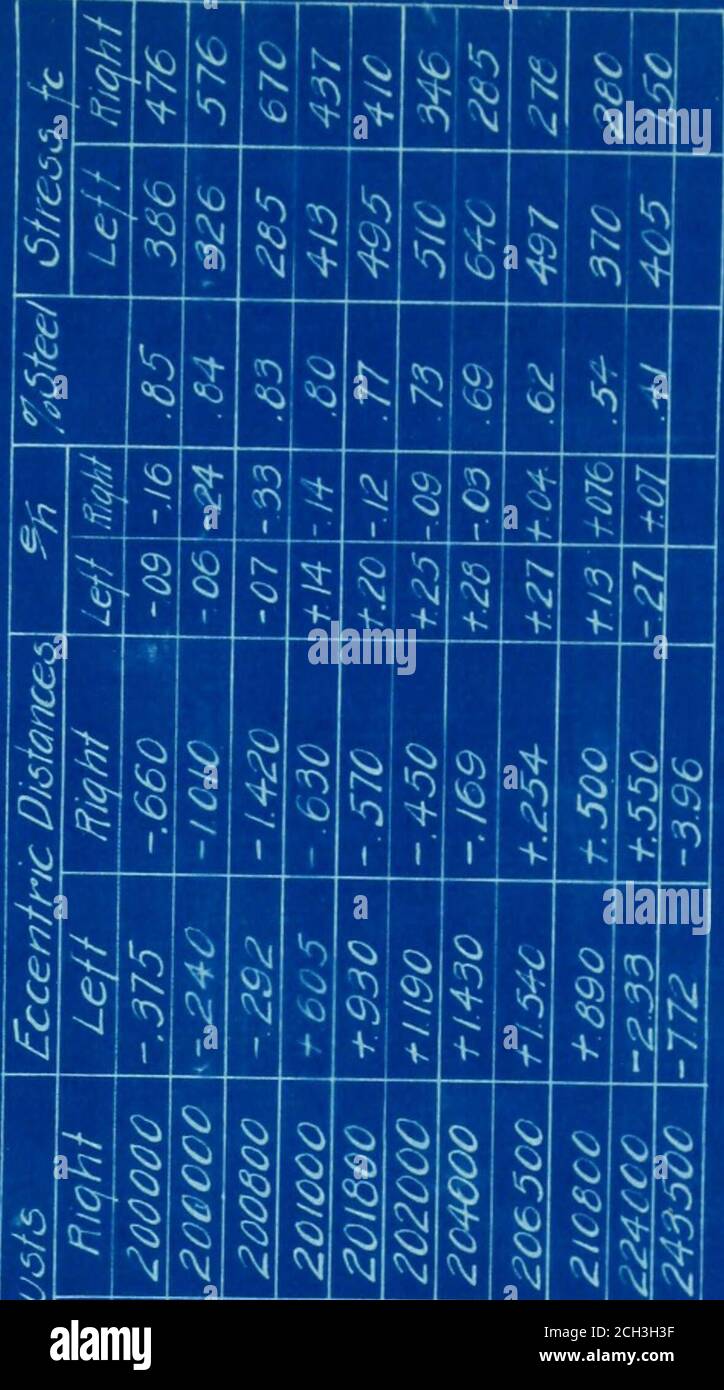 usts Eccentric Distances e/h %Steel Stress fc
Right Left Right Left Right Left Right
200000 -.375 -.660 -.09 -.16 .85 386 476
200000 -.240 -1.010 -.06 -.24 .84 326 576
200800 -.292 -1.420 -.07 -.33 .83 285 670
201000 +.605 -.630 +.14 -.14 .80 413 437
201800 +.930 -.570 +.20 -.12 .77 495 410
202000 +1.190 -.450 +.25 -.09 .73 510 346
204000 +1.430 -.169 +.28 -.03 .69 640 285
206500 +1.540 +.254 +.27 +.04 .62 497 278
210800 +.890 +.500 +.13 +.076 .54 370
224000 -2.33 +.550 -.27 +.07 405
243500 -7.72 -3.96
alamy
Image ID: 2CH3H3F
www.alamy.com